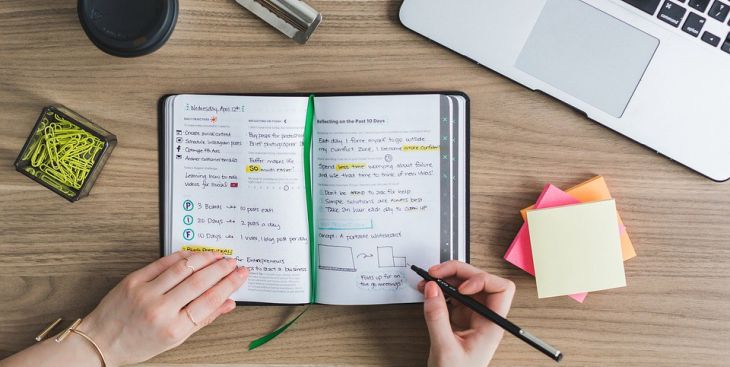 Wednesday, April 12th
DAILY PRACTICES
REFLECTING ON TODAY
Create social content
Schedule Instagram post
Optimize FB Ads
Answer customer emails
Buy props for
Brief
Buffer makes life
SO much easier
Learning how to edit
videos for social
P 3 Boards 10 posts each
I 20 Days 2 posts a day
F 10 Days 1 video, 1 blog post per day
for Entrepreneurs
to start a business
Reflecting on the Past 10 Days
Each day I force myself to go outside
my comfort zone, I become more confident
Spend less time worrying about failure
and use that time to think of new ideas!
Don't be afraid to ask for help
Simple solutions are always best
Take an hour each day to
Concept: A portable whiteboard
Folds up for on
the go meetings!